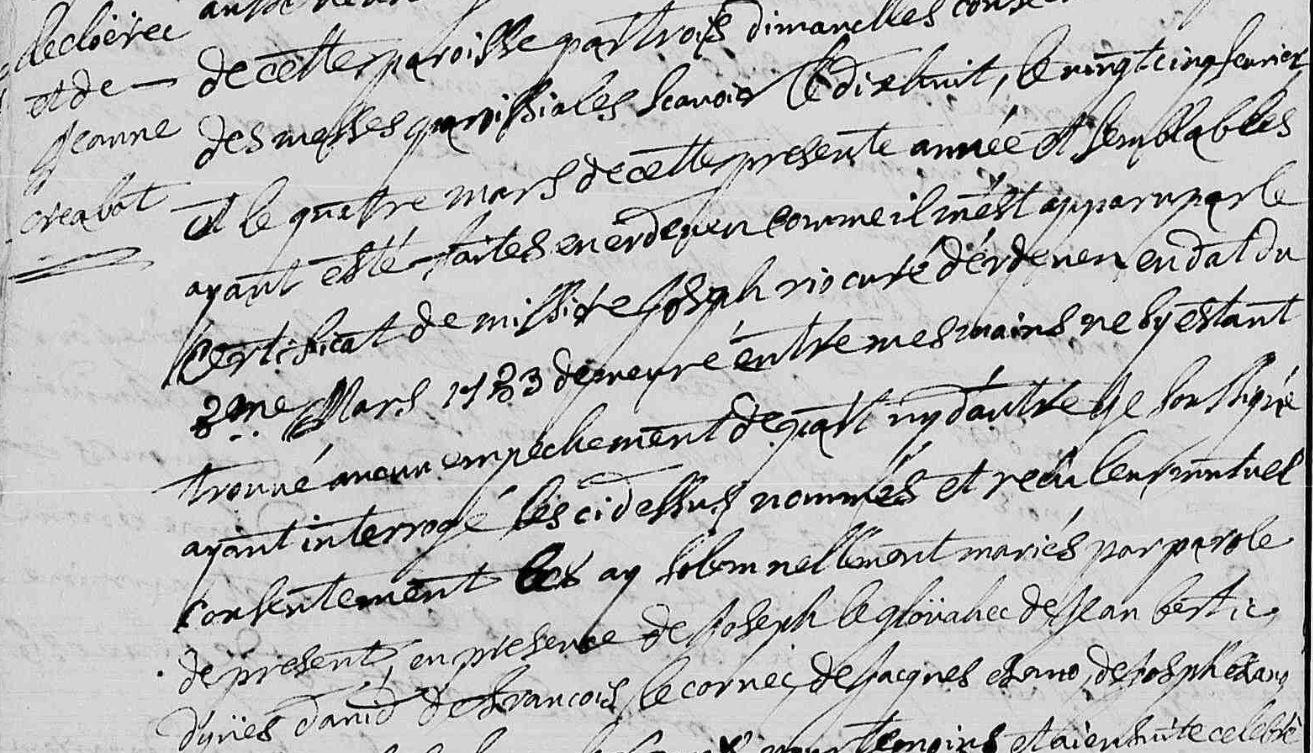 lecloërec
et de —
Jeanne
creabot
de cette paroisse par trois dimanches
des messes paroissiales scavoir le dixhuit, le vingt cinq fevrier
et le quatre mars de cette presente année et semblables
ayant esté faites en erdeven comme il m'ést apparu par le
certificat de missire Joseph rio curé d'érdeven en dat du
Mars demeuré éntre mes mains ne s'y estant
trouvé aucun empechement de quart ny d'autre Je soussigné
ayant interrogé les ci dessus nommés et recu leur mutuel
consentement les ay solemnellement mariés par parole
de present, en presence de Joseph le glouahec de Jean bertic,
d'yves david de francois le cornec, de Jacques ezano, de Joseph ezano
temoins et ai ensuite celebré